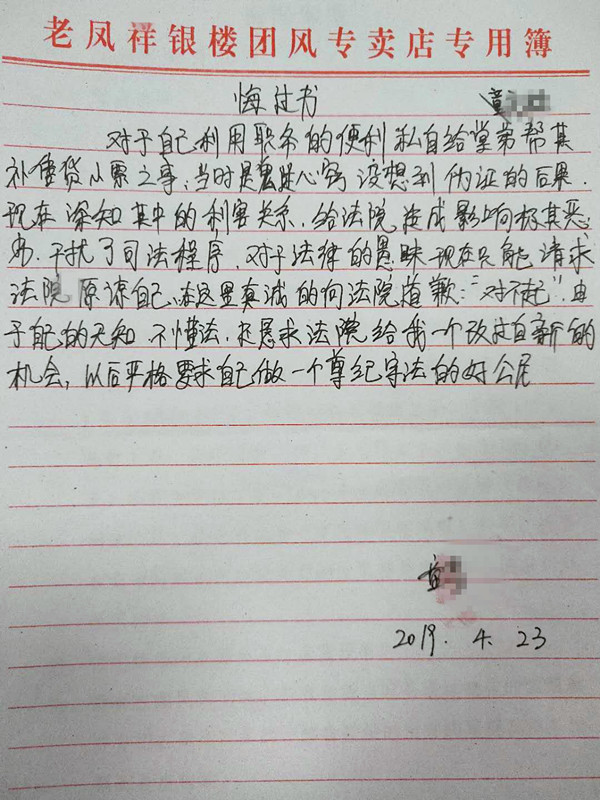 老凤祥银楼团风专卖店专用簿
悔过书
童
对于自己利用职务的便利私自给堂弟帮其
补售货小票之事,当时是鬼迷心窍没想到伪证的后果.
现在深知其中的利害关系,给法院造成影响极其恶
劣,干扰了司法程序,对于法律的愚昧现在只能请求
法院原谅自己,在这里真诚的向法院道歉:“对不起”,由
于自己的无知,不懂法,还恳求法院给我一个改过自新的
机会,以后严格要求自己做一个尊纪守法的好公民
童
2019.4.23